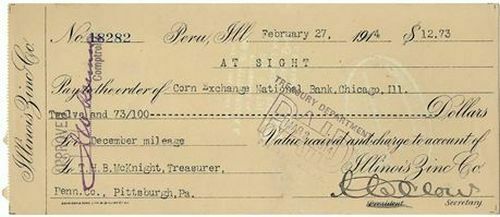 No. 18282 Peru, Ill. February 27, 1914 $ 12.73
AT SIGHT
Pay to the order of Corn Exchange National Bank, Chicago, Ill.
Twelve and 73/100 Dollars
For December mileage Value received and charge to account of
To T.H.B.McKnight, Treasurer, Illinois Zinc Co.
Penn.Co., Pittsburgh, Pa.
President Secretary
Illinois Zinc Co.
APPROVED
Comptroller
TREASURY DEPARTMENT
PAID